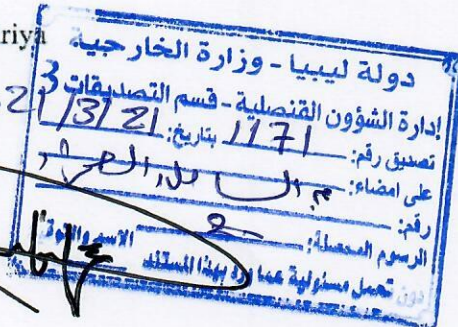 riya
دولة ليبيا - وزارة الخارجية
إدارة الشؤون القنصلية - قسم التصديقات 3
تصديق رقم: 1171 بتاريخ: 21/3/21
على امضاء:
رقم:
الرسوم المحصلة: الاسم والتوقيع
دون تحمل مسئولية عما ورد بهذا المستند